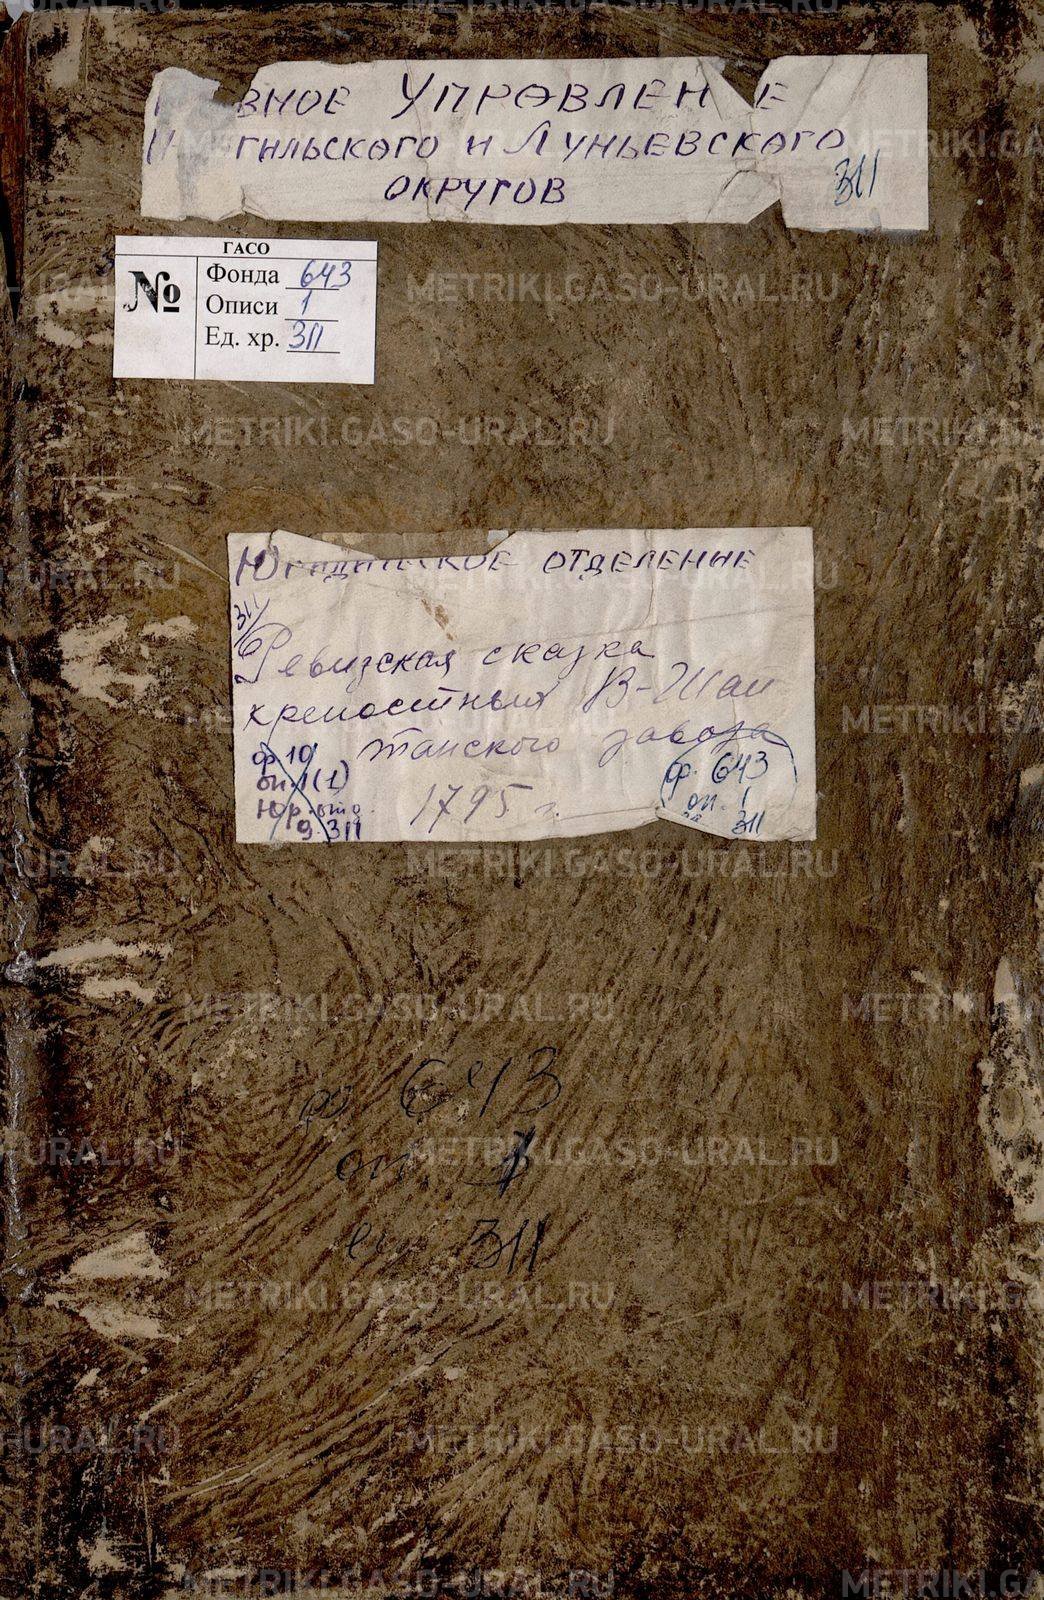 ВНОЕ УПРАВЛЕН Е
ГИЛЬСКОГО И ЛУНЬЕВСКОГО
ОКРУГОВ
311
ГАСО
№
Фонда 643
Описи 1
Ед. хр. 311
ЮРИДИЧЕСКОЕ ОТДЕЛЕНИЕ
311/6
Ревизская сказка
крепостных В-Шай
танского завода
1795 г.
ф. 10
оп. 1(1)
Юр. отд.
д. 311
ф. 643
оп. 1
311
ф 643
оп. 1
ед. 311
METRIKI.GASO-URAL.RU